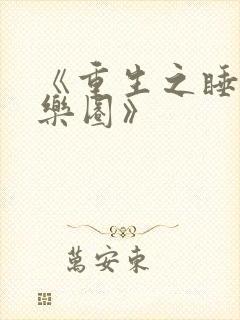 《重生之睡
樂園》
萬安東